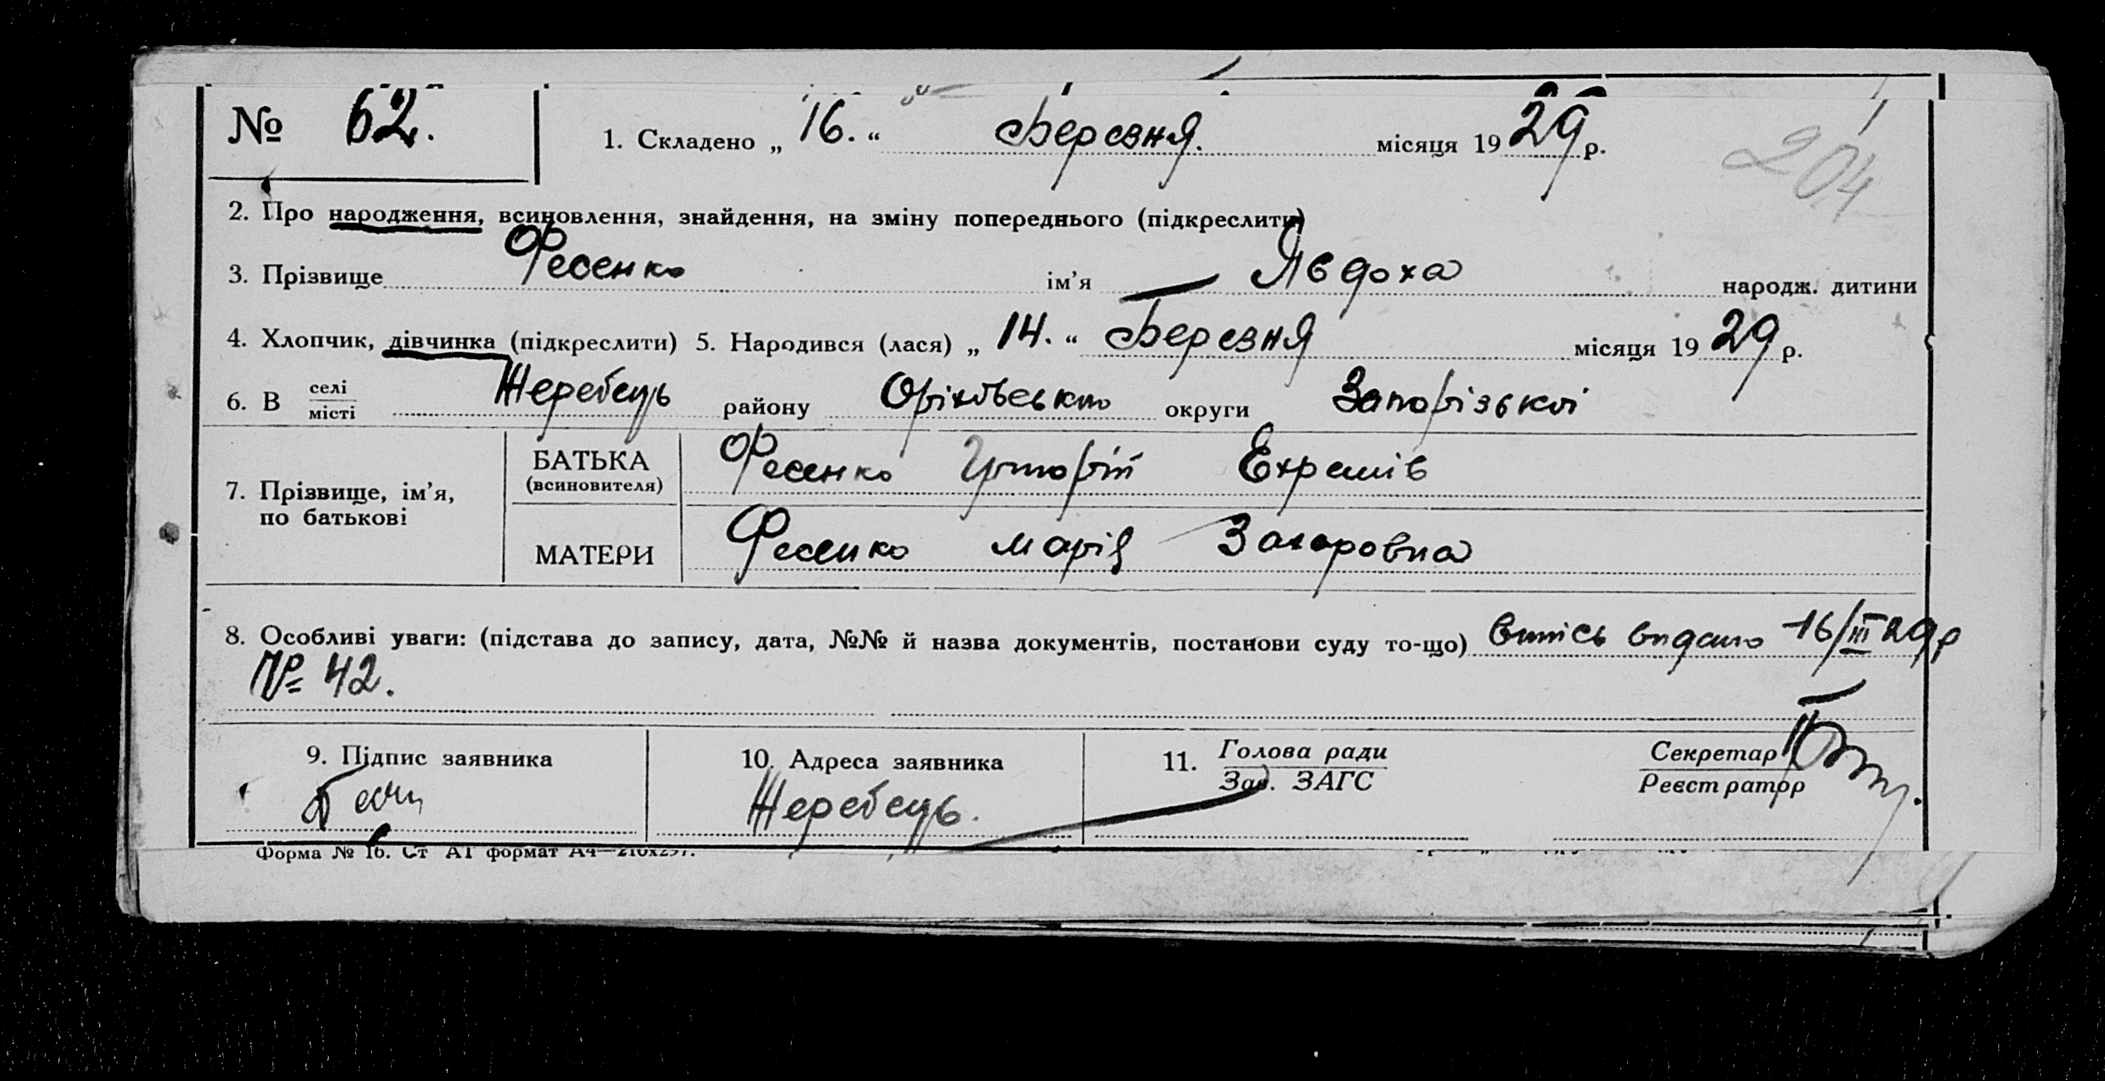 № 62. 1. Складено „ 16. “ Березня. місяця 1929 р.
204
2. Про народження, всиновлення, знайдення, на зміну попереднього (підкреслити)
3. Прізвище Фесенко ім'я Явдоха народж. дитини
4. Хлопчик, дівчинка (підкреслити) 5. Народився (лася) „ 14. “ Березня місяця 1929 р.
6. В селі Жеребець району Оріхівського округи Запорізької
місті
7. Прізвище, ім'я, по батькові
БАТЬКА (всиновителя) Фесенко Григорій
МАТЕРИ Фесенко Марія Захаровна
8. Особливі уваги: (підстава до запису, дата, №№ й назва документів, постанови суду то-що) випись видано 16/III 29р
№ 42.
9. Підпис заявника 10. Адреса заявника 11. Голова ради Секретар
Зав. ЗАГС Реєстратор
Жеребець.
Форма № 16. Ст А1 формат А4—210х297.